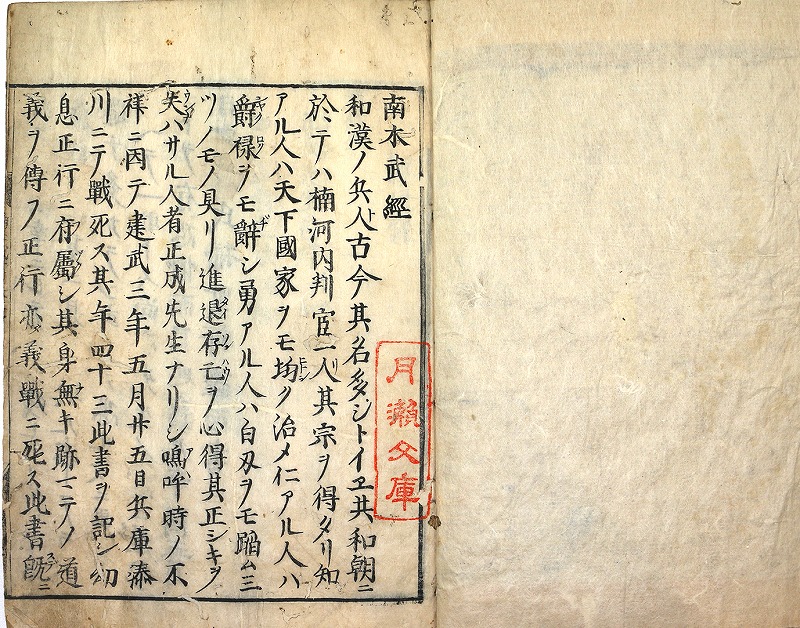 南木武經
和漢ノ兵人古今其名多シトイヱ共和朝ニ
於テハ楠河内判官一人其宗ヲ得タリ知
アル人ハ天下國家ヲモ均ク治メ仁アル人ハ
爵禄ヲモ辭シ勇アル人ハ白刄ヲモ蹈ム三
ツノモノ具リ進退存亡ヲ心得其正シキヲ
失ハサル人者正成先生ナリシ嗚呼時ノ不
祥ニ因テ建武三年五月廿五日兵庫湊
川ニテ戰死ス其年四十三此書ヲ記シ幼
息正行ニ府屬シ其身無キ跡マテノ道
義ヲ傳フ正行亦義戰ニ死ス此書旣ニ
月瀬文庫